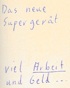 Das neue
Supergerät
viel Arbeit
und Geld...